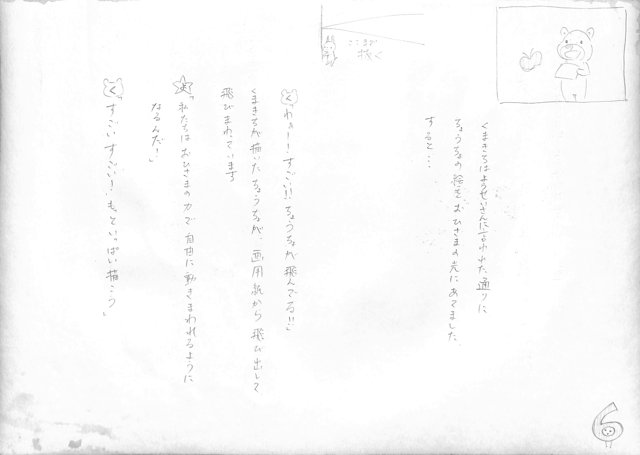 ここまで
抜く
くまきちはようせいさんに言われた通りに
ちょうちょの絵をおひさまの光にあてました。
すると…
く「わぁー！すごい!!ちょうちょが飛んでる!!」
くまきちが描いたちょうちょが、画用紙から飛び出して
飛びまわっています
「私たちはおひさまの力で自由に動きまわれるように
なるんだ！」
く「すごいすごい！もっといっぱい描こう」
6